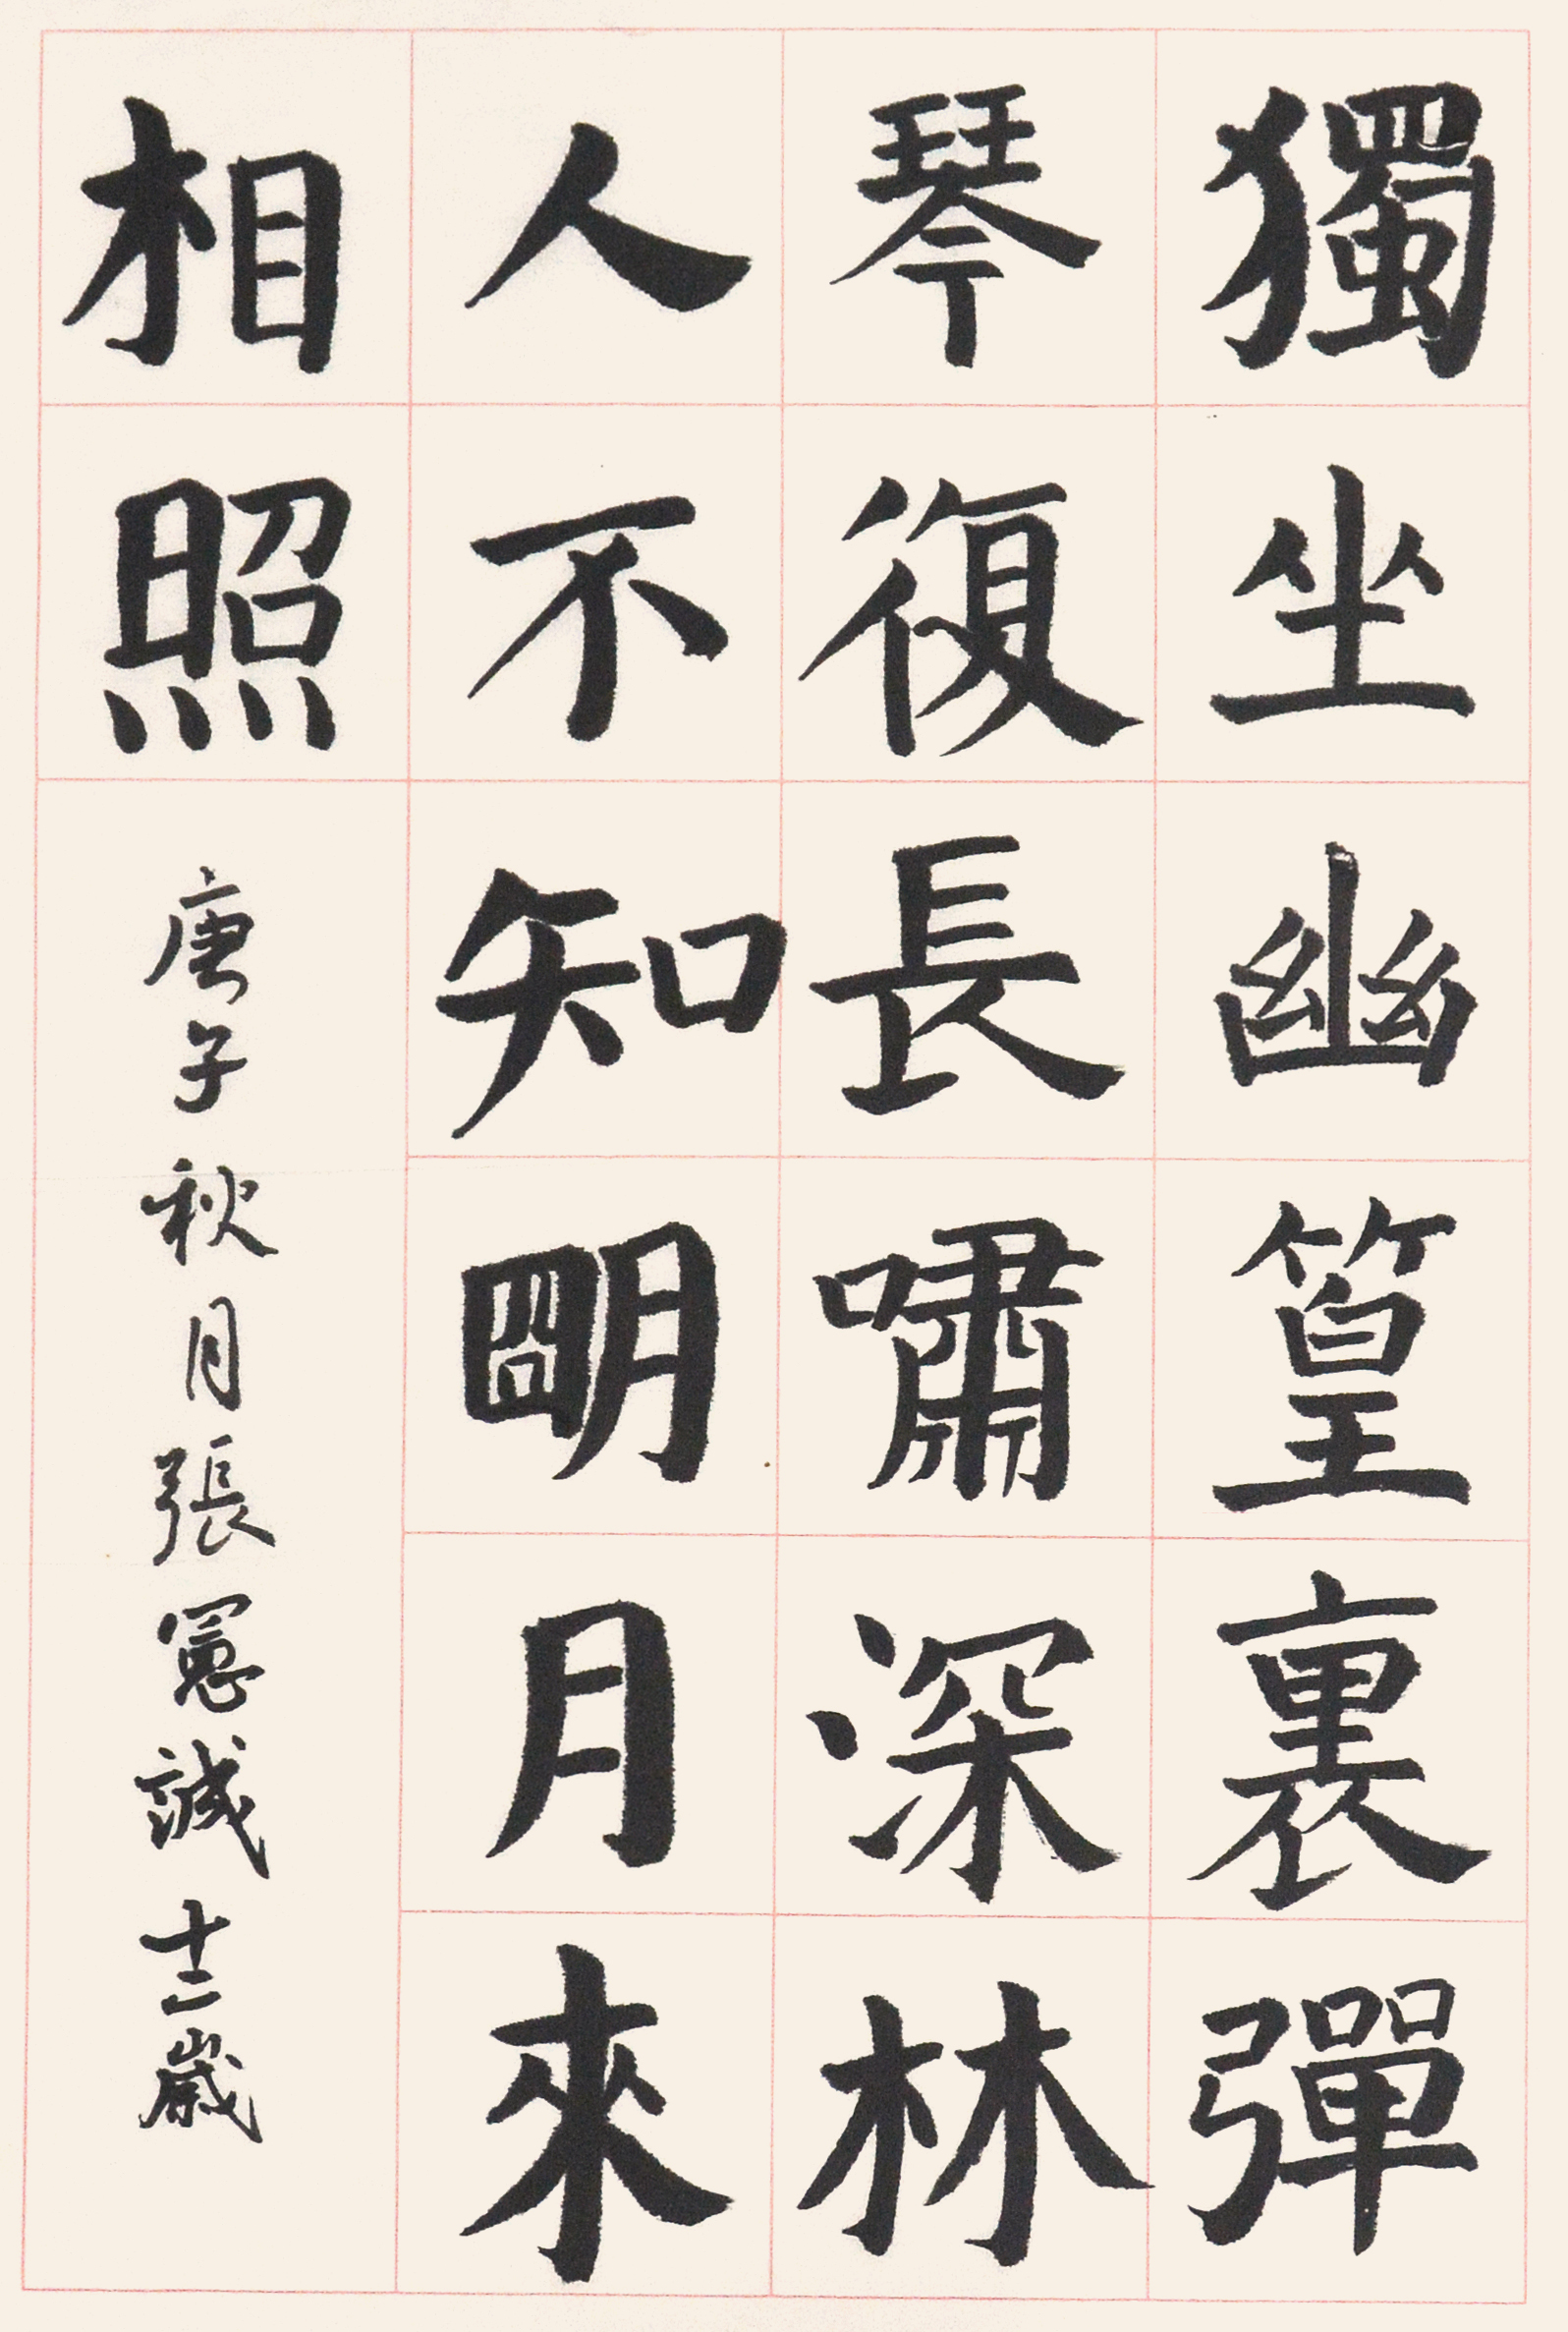 獨坐幽篁裏彈
琴復長嘯深林
人不知朙月來
相照
庚子秋月張憲誠十二歲